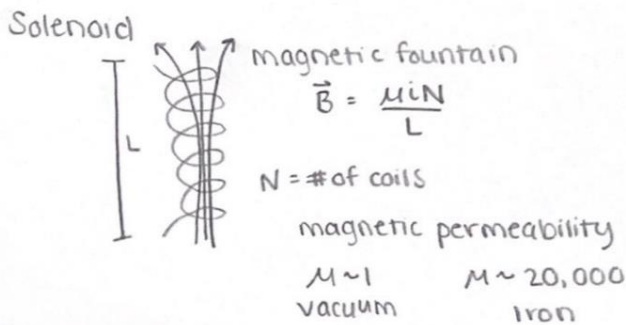 Solenoid
magnetic fountain
B⃗ = μiN / L
L
N = # of coils
magnetic permeability
μ ~ 1    μ ~ 20,000
vacuum    iron